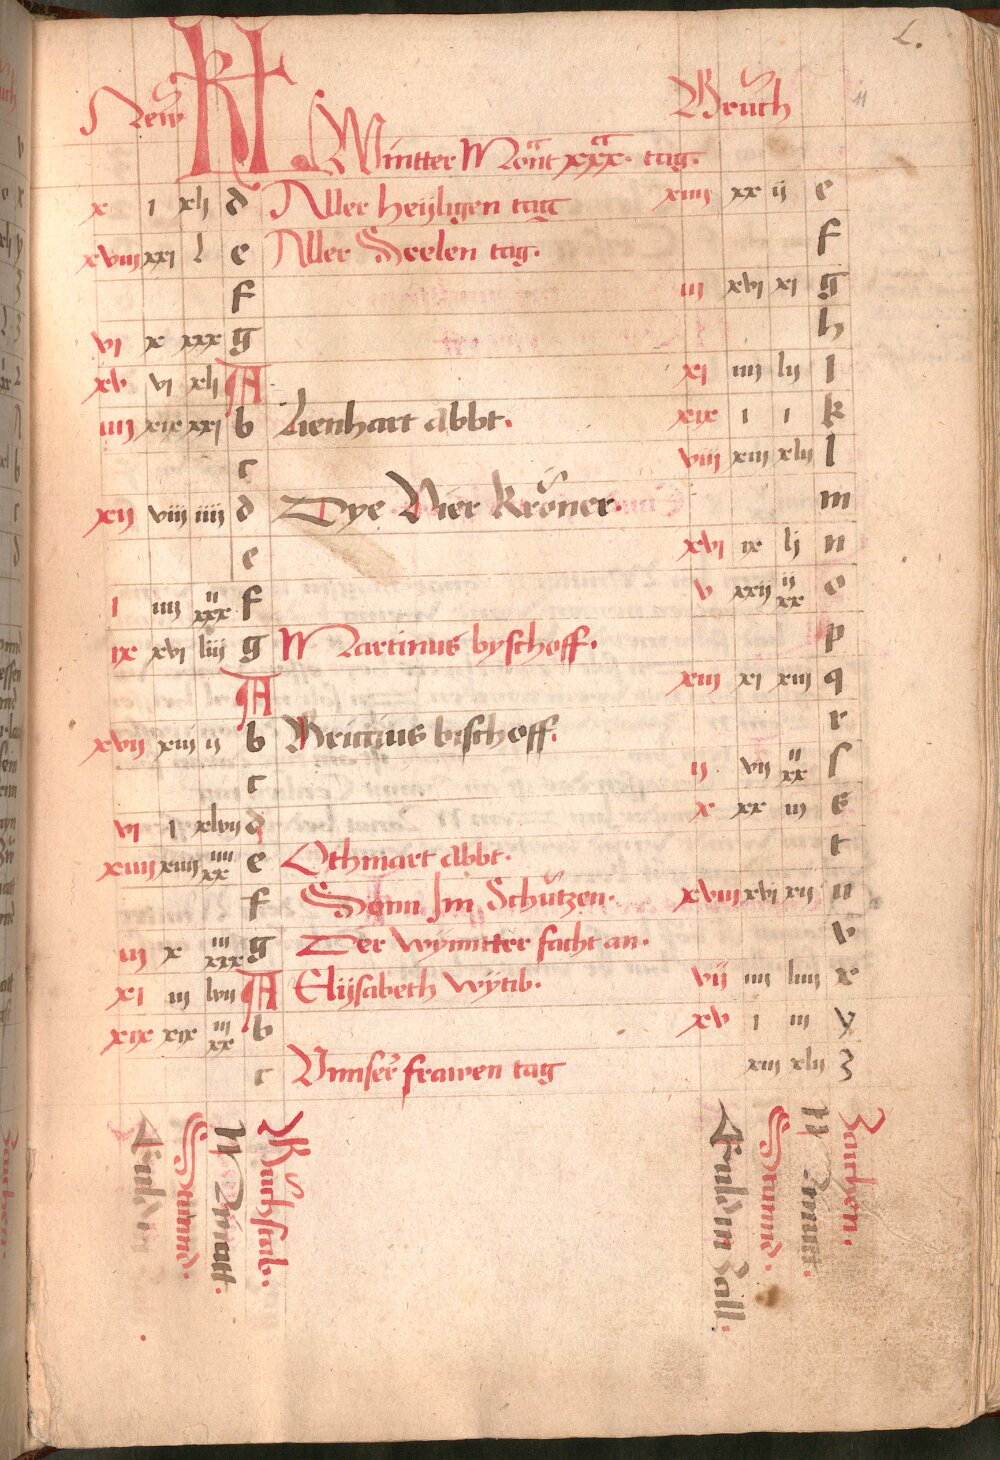 L.
11
New KL Bruch
Wintter Monat xxx. tag.
x i xlj d Aller heyligen tag xiiij xx ij e
xviij xxi l e Aller Seelen tag. f
f iij xvi xi g
vi x xxx g h
xv vi xlj A xi iiij lij i
iiij xix xxi b Lienhart abbt. xix i i k
c viij xiij xlij l
xij viij iiij d Dye Vier Kröner. m
e xvi ix lj n
i iiij ii xxx f v xxij ii xx o
ix xvi liij g Martinus byschoff. p
A xiij xi xiij q
xvij xiij ij b Brictius bischoff. r
c ij vij ii xx s
vi i xlvij d x xx iij
xiiij xiiij iiii xx e Othmart abbt. t
f Sonn Im Schützen. xviij xvi xij u
iij x iii xxx g Der wÿnntter facht an. v
xi iij lvij A Elÿsabeth wÿtib. vij iiij liiij x
xix xix iii xx b xv i iij y
c Unnser frawen tag xiij xlij z
Gulden
Stunnd.
Minutt.
Buchstab.
Gulden Zall.
Stunnd.
Minutt.
Zaichen.